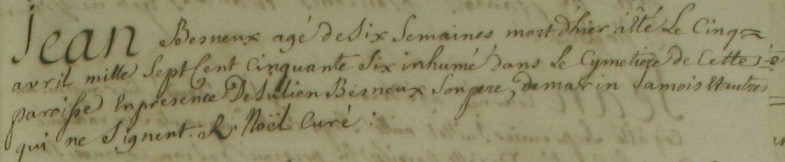 Jean Besneux agé de Six Semaines mort d'hier a été Le Cinq
avril mille Sept Cent Cinquante Six inhumé dans Le Cymetiere de Cette
paroisse En presence De Julien Besneux Son pere, de marin Jamois & autres
qui ne Signent. R. Noël Curé :